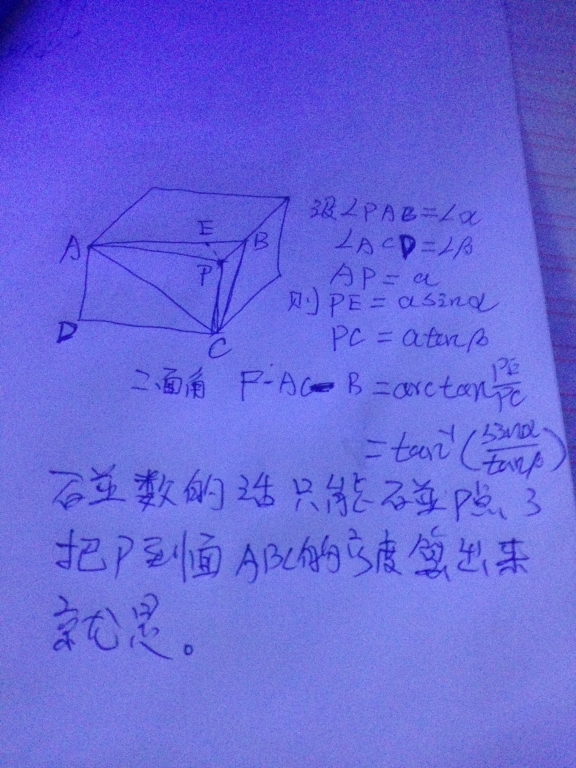 A
E
B
P
D
C
设∠PAB=∠α
∠ACD=∠β
AP=a
则PE=asinα
PC=atanβ
二面角 P-AC-B=arctan PE/PC
=tan⁻¹(sinα/tanβ)
砬数的话只能砬P点、了
把P到面ABC的高度算出来
就是。